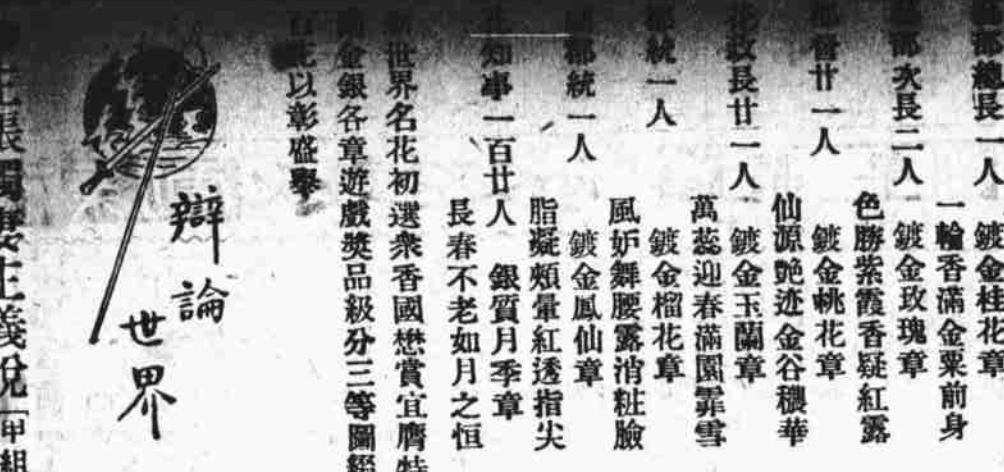 部總長一人　鍍金桂花章
一輪香滿金粟前身
部次長二人　鍍金玫瑰章
色勝紫霞香疑紅露
都督廿一人　鍍金桃花章
仙源艶迹金谷穠華
花政長廿一人　鍍金玉蘭章
萬蕊迎春滿園霏雪
都統一人　鍍金榴花章
風妒舞腰露消粧臉
都統一人　鍍金鳳仙章
脂凝頰暈紅透指尖
知事一百廿人　銀質月季章
長春不老如月之恒
世界名花初選衆香國懋賞宜膺特
金銀各章遊戲奬品級分三等圖經
以彰盛舉
辯論
世界
主張獨妻主義說「甲組